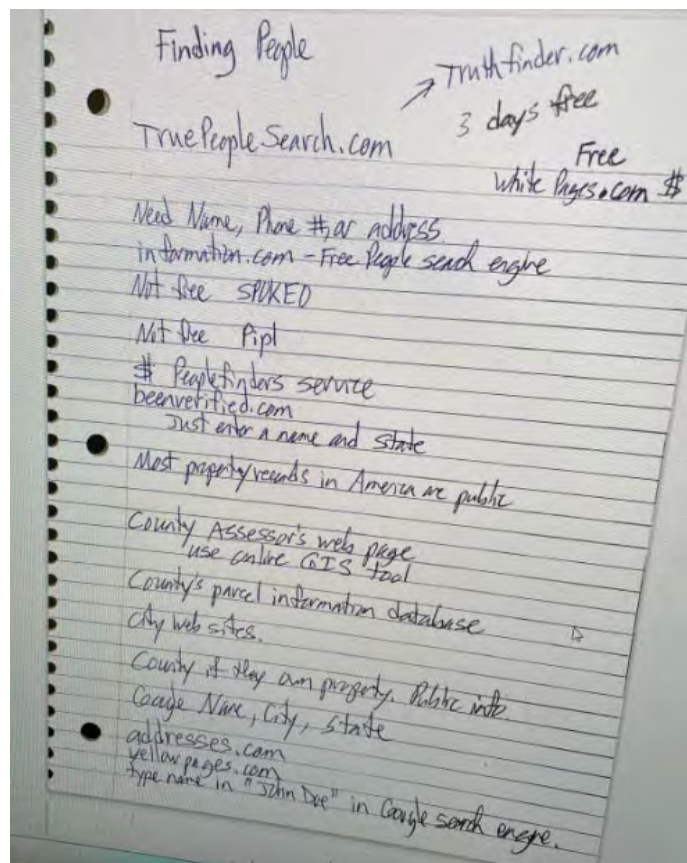 Finding People
Truthfinder.com
3 days free
TruePeopleSearch.com
Free
White Pages.com $
Need Name, Phone #, or address
information.com - Free People search engine
Not free SPOKEO
Not free Pipl
$ Peoplefinders service
beenverified.com
Just enter a name and state
Most property records in America are public
County Assessor's web page
use online GIS tool
County's parcel information database
City web sites.
County if they own property. Public info.
Google Name, City, State
addresses.com
yellowpages.com
type name in "John Doe" in Google search engine.